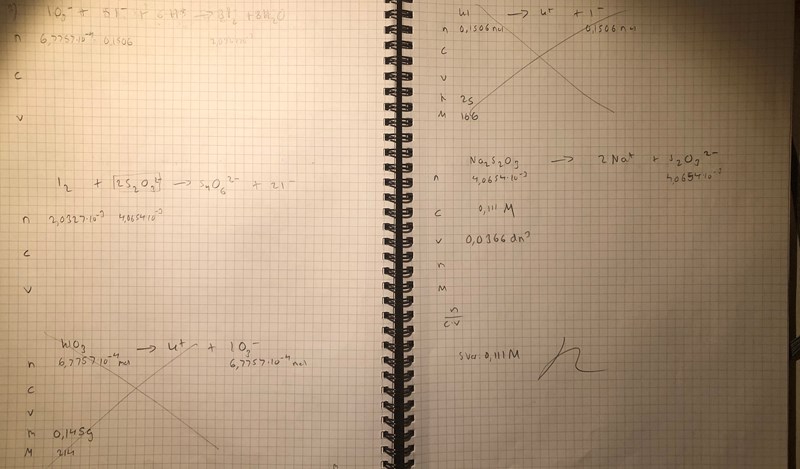 IO₃⁻ + 5I⁻ + 6H⁺ → 3I₂ + 3H₂O
n 6,7757·10⁻⁴ 0,1506
c
v
I₂ + [2S₂O₃²⁻] → S₄O₆²⁻ + 2I⁻
n 2,0327·10⁻³ 4,0654·10⁻³
c
v
KIO₃ → K⁺ + IO₃⁻
n 6,7757·10⁻⁴ mol 6,7757·10⁻⁴ mol
c
v
m 0,145g
M 214
KI → K⁺ + I⁻
n 0,1506 mol 0,1506 mol
c
v
m 25
M 166
Na₂S₂O₃ → 2Na⁺ + S₂O₃²⁻
n 4,0654·10⁻³ 4,0654·10⁻³
c 0,111 M
v 0,0366 dm³
m
M
n
c·v
Svar: 0,111 M